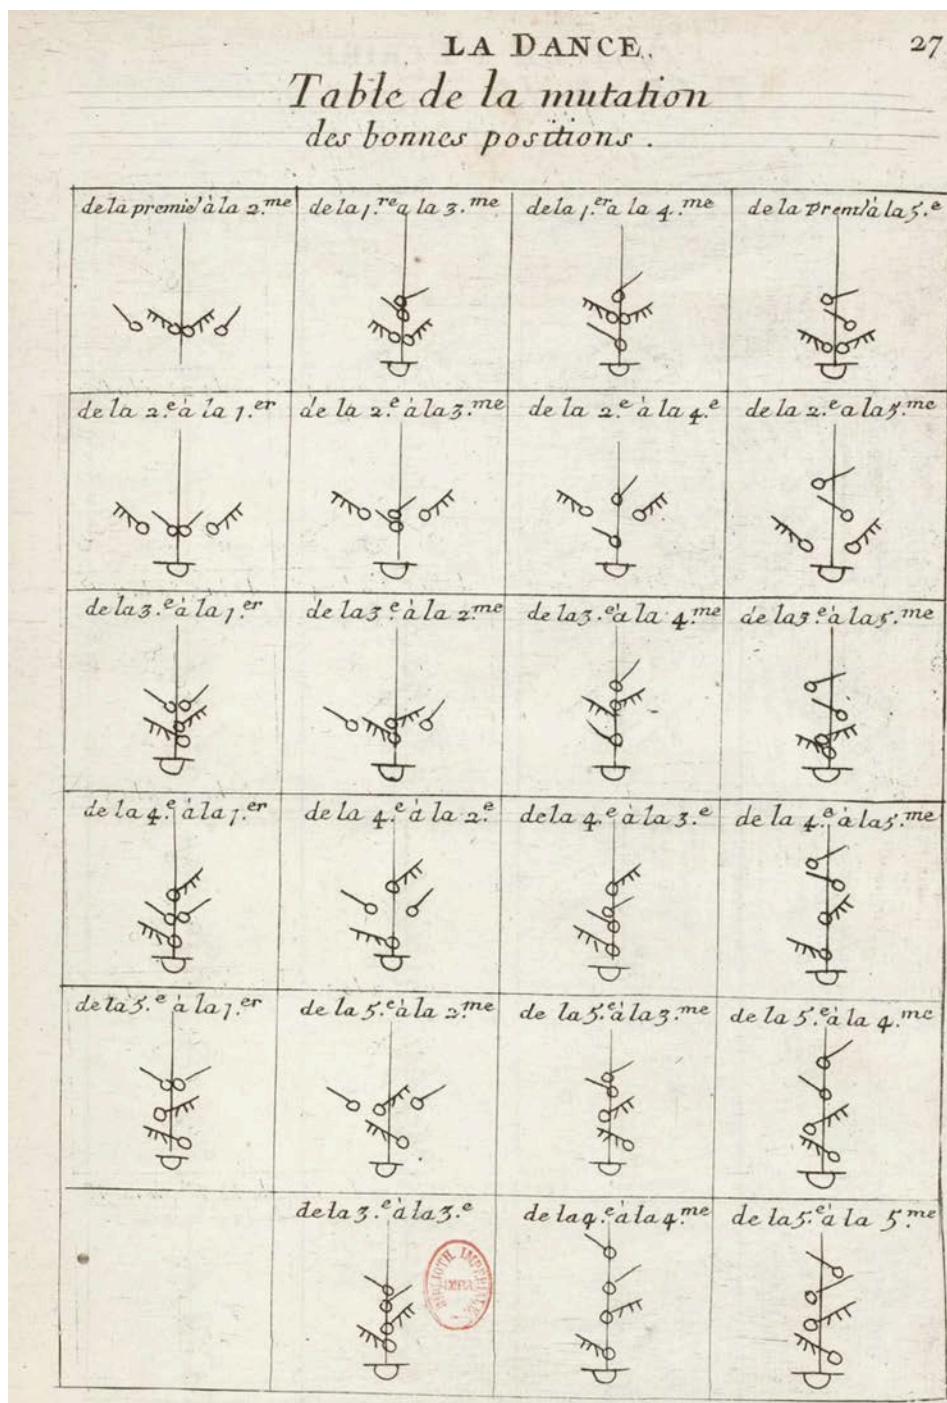 LA DANCE.
27
Table de la mutation
des bonnes positions.
de la premie.' à la 2.me
de la 1.re a la 3.me
de la 1.er a la 4.me
de la Prem.' à la 5.e
de la 2.e à la 1.er
de la 2.e à la 3.me
de la 2.e à la 4.e
de la 2.e a la 5.me
de la 3.e à la 1.er
de la 3.e à la 2.me
de la 3.e à la 4.me
de la 3.e à la 5.me
de la 4.e à la 1.er
de la 4.e à la 2.e
de la 4.e à la 3.e
de la 4.e à la 5.me
de la 5.e à la 1.er
de la 5.e à la 2.me
de la 5.e à la 3.me
de la 5.e à la 4.me
de la 3.e à la 3.e
de la 4.e à la 4.me
de la 5.e à la 5.me
BIBLIOTH. IMPERIALE